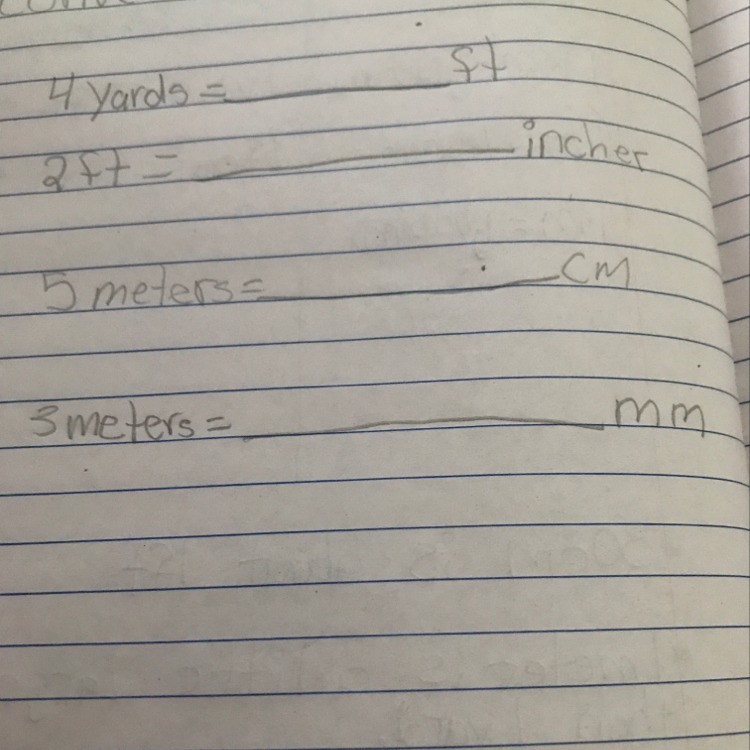 4 yards = __________ ft
2 ft = __________ incher
5 meters = __________ cm
3 meters = __________ mm